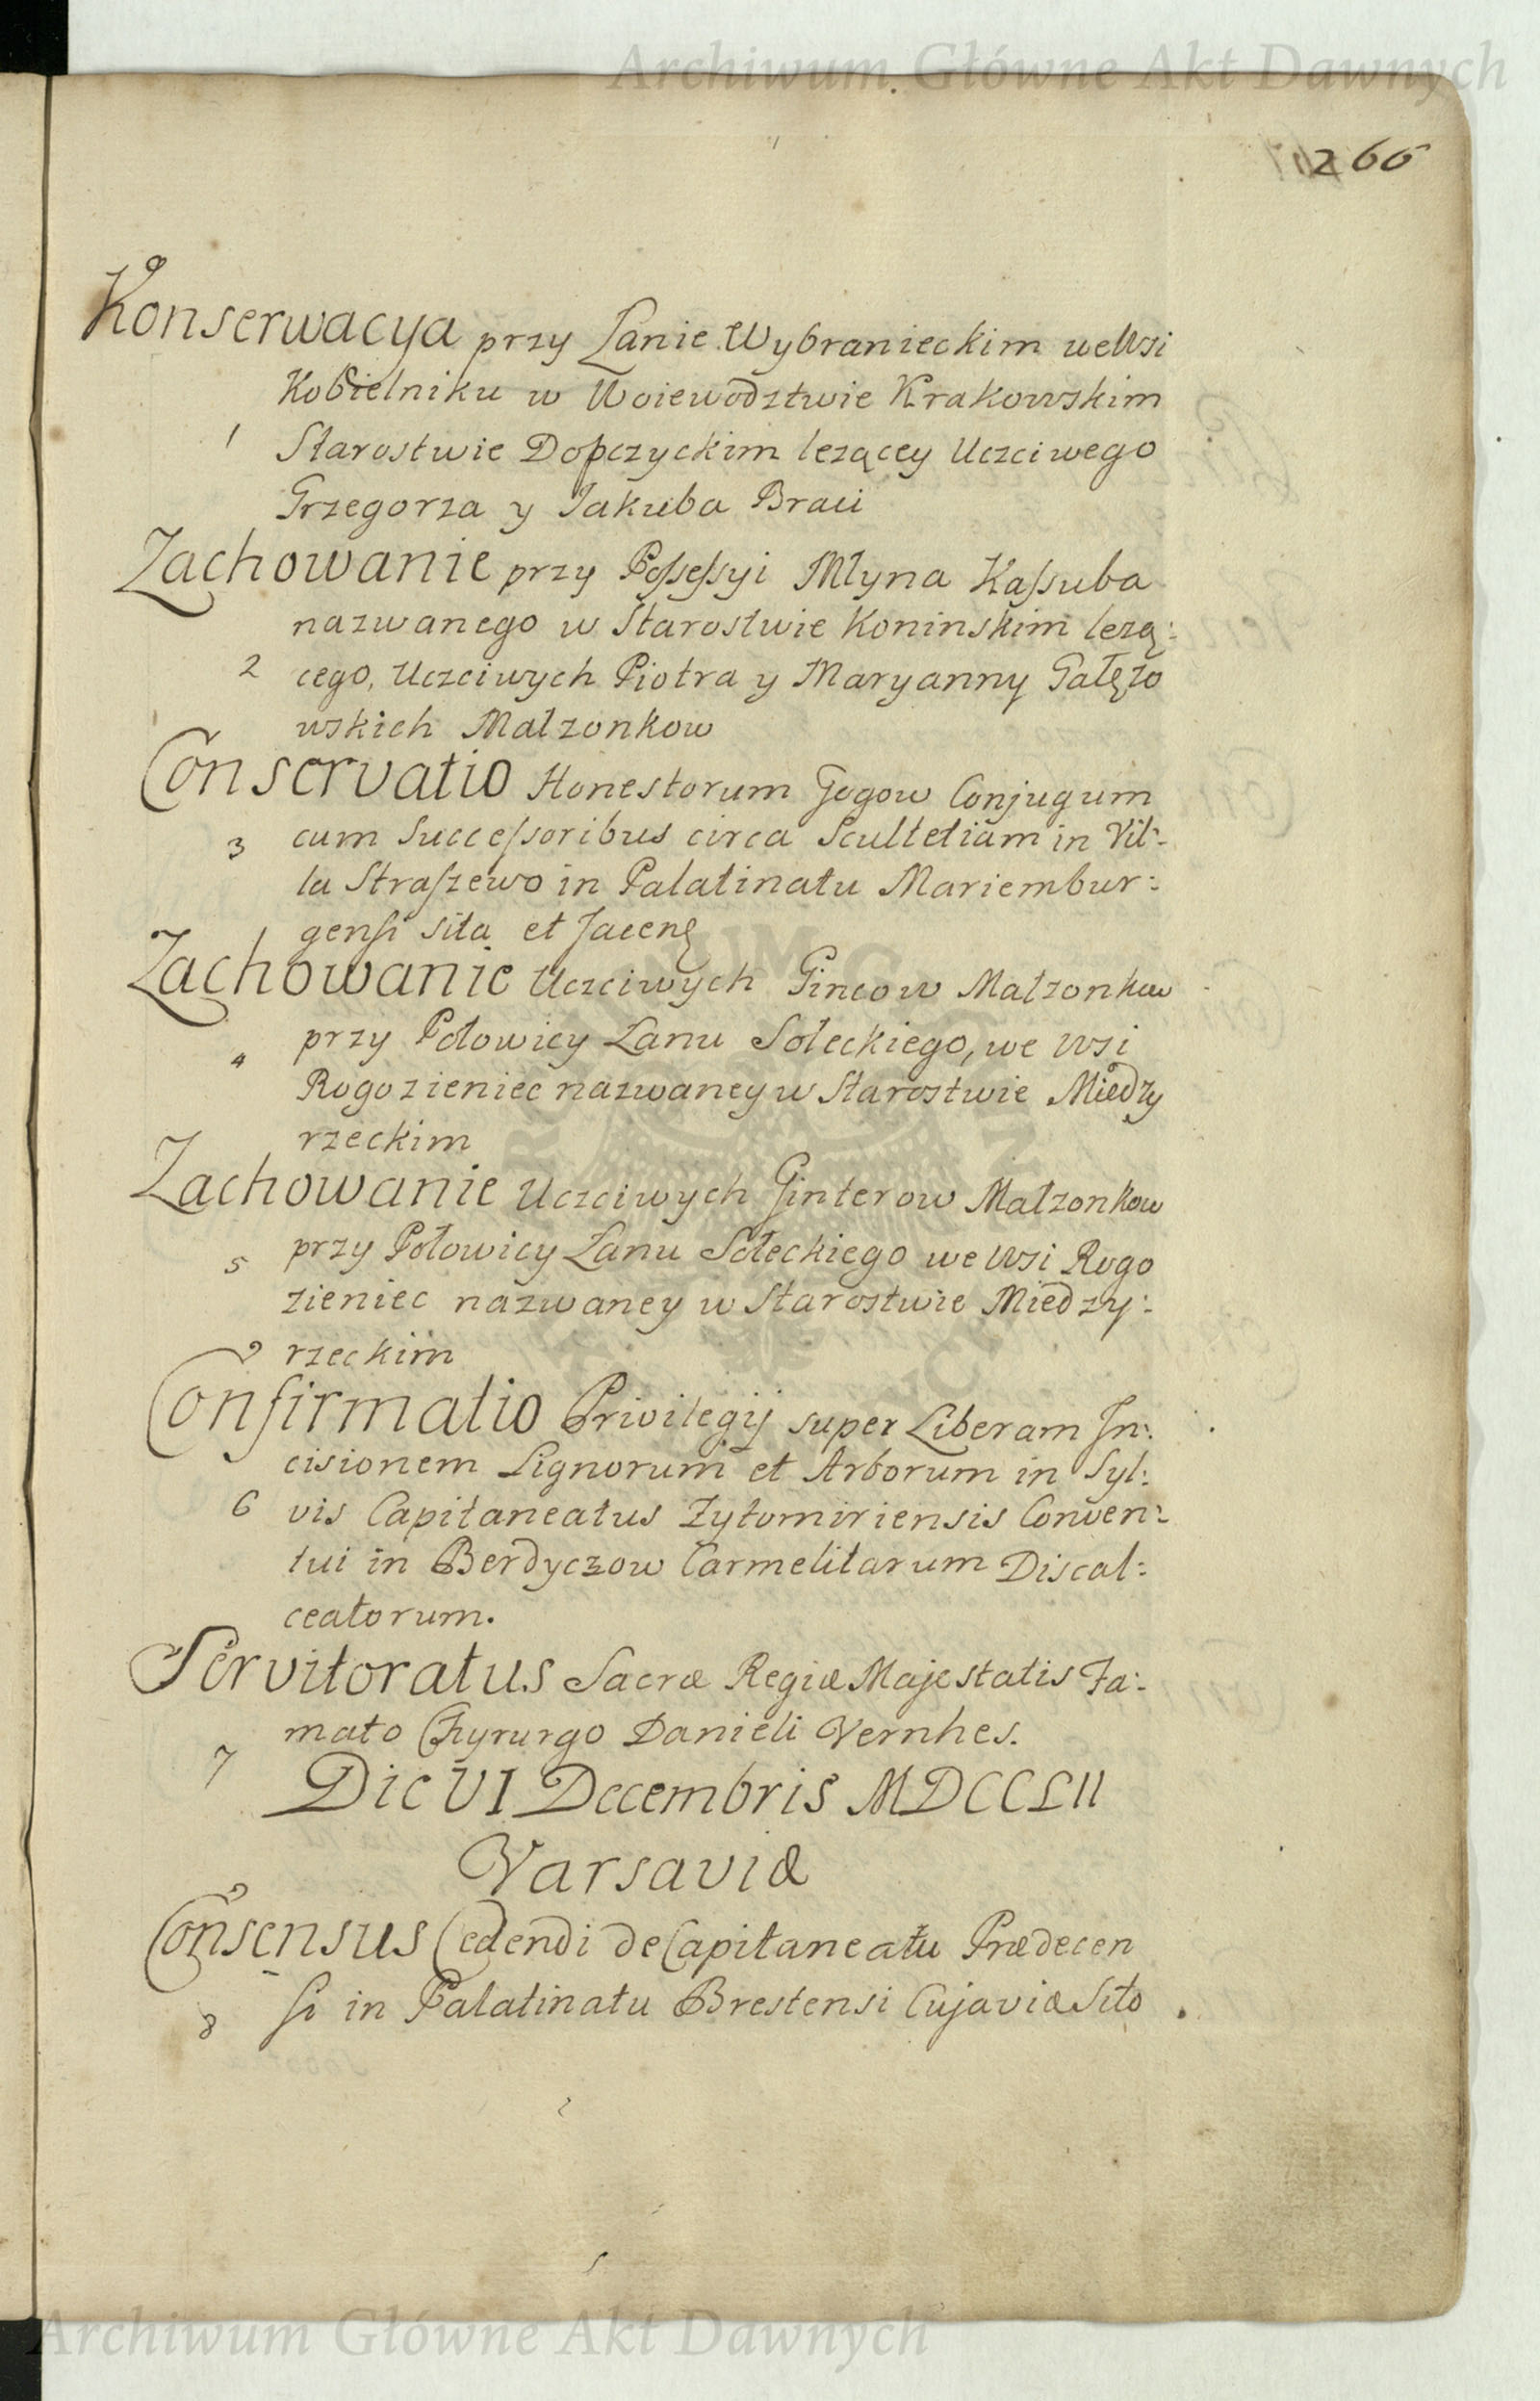 Archiwum Główne Akt Dawnych
266
Konserwacya przy Łanie Wybranieckim we Wsi
Kobielniku w Woiewodztwie Krakowskim
1 Starostwie Dopczyckim lezącey Uczciwego
Grzegorza y Jakuba Braci
Zachowanie przy Possessyi Młyna Kassuba
nazwanego w Starostwie Koninskim lezą:
2 cego, Uczciwych Piotra y Maryanny Gałęzo
wskich Małzonkow
Conservatio Honestorum Gogow Conjugum
3 cum Successoribus circa Scultetiam in Vil:
la Straszewo in Palatinatu Mariembur:
gensi sita et Jacen
Zachowanie Uczciwych Gincow Małzonkow
4 przy Połowicy Łanu Sołeckiego, we Wsi
Rogozieniec nazwaney w Starostwie Miedzy
rzeckim
Zachowanie Uczciwych Ginterow Małzonkow
5 przy Połowicy Łanu Sołeckiego we Wsi Rogo
zieniec nazwaney w Starostwie Miedzy:
rzeckim
Confirmatio Privilegij super Liberam In:
cisionem Lignorum et Arborum in Syl:
6 vis Capitaneatus Zytomiriensis Conven:
tui in Berdyczow Carmelitarum Discal:
ceatorum.
Servitoratus Sacræ Regiæ Majestatis Fa:
mato Chyrurgo Danieli Vernhes.
7
Die VI Decembris MDCCLII
Varsaviæ
Consensus Cedendi de Capitaneatu Prædecen
8 si in Palatinatu Brestensi Cujaviæ Sito
Archiwum Główne Akt Dawnych